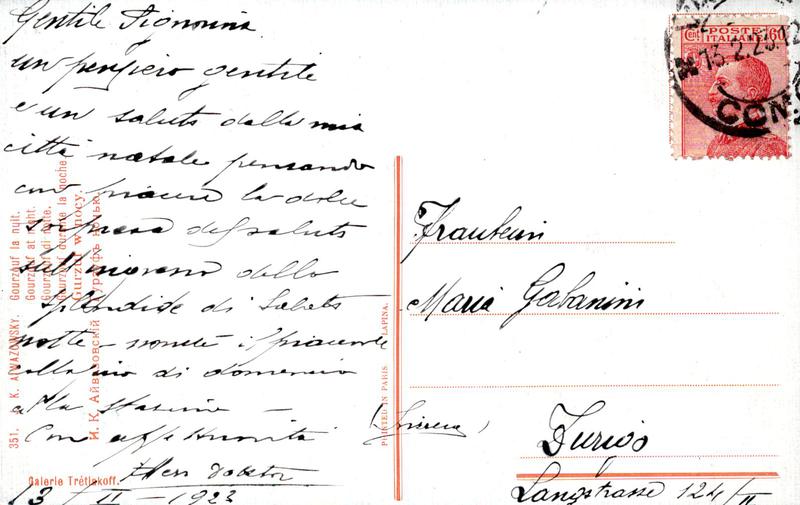 Gentile Signorina
un pensiero gentile
e un saluto dalla mia
città natale pensando
con piacere la dolce
sorpresa del saluto
dello
splendide di Sabato
notte - il piacente
di domenica
alla stazione -
Con affettuosità
Herr Doktor
13/II-1923
351. K. AIWAZOWSKY. Gourzouf la nuit.
Gourzouf at night.
Gourzouf di notte.
Gourzouf durante la noche.
Gurzuf w nocy.
И. К. Айвазовскій
Galerie Trétiakoff.
PRINTED IN PARIS LAPINA.
POSTE
ITALIANE
Cent. 60
13.2.23.12
COMO
Fraulein
Maria Gabanini
(Svizzera)
Zurigo
Langstrasse 124/II